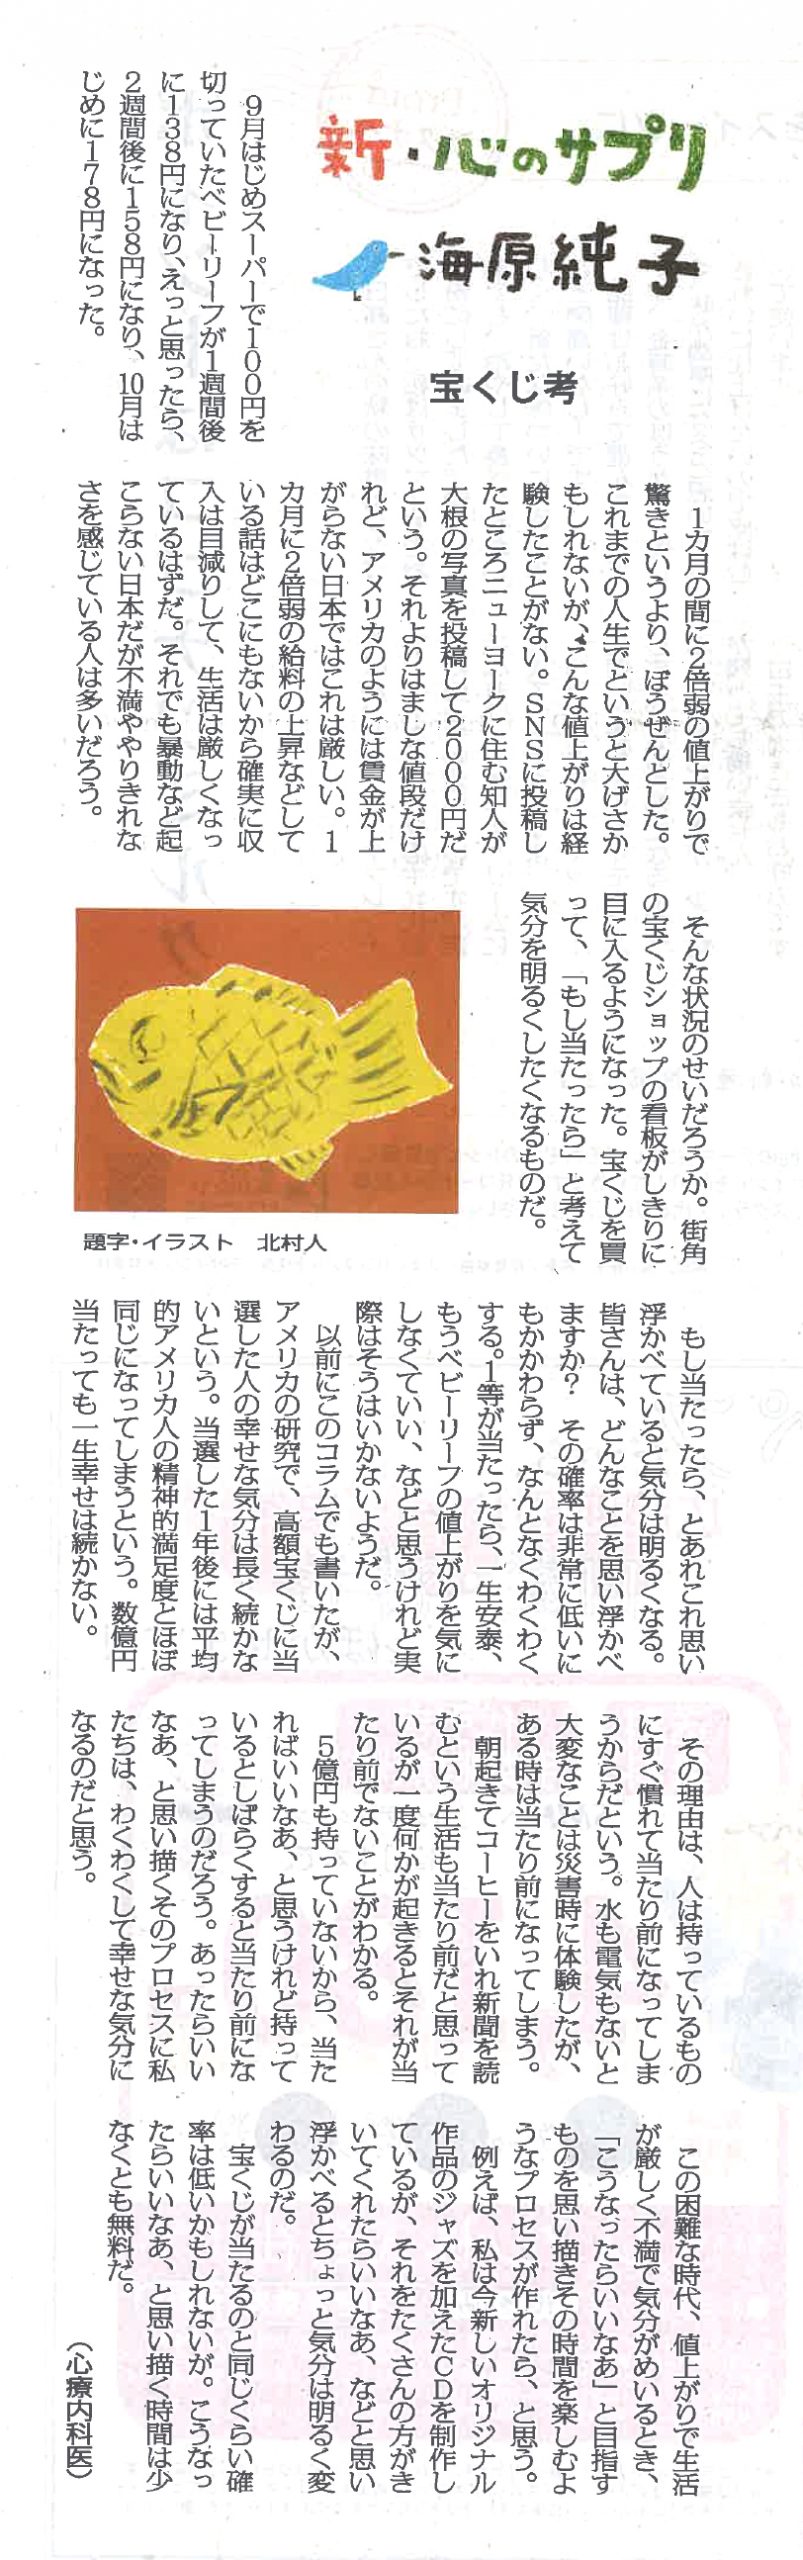 新・心のサプリ
海原純子
宝くじ考
９月はじめスーパーで１００円を
切っていたベビーリーフが１週間後
に１３８円になり、えっと思ったら、
２週間後に１５８円になり、10月は
じめに１７８円になった。
１カ月の間に２倍弱の値上がりで
驚きというより、ぼうぜんとした。
これまでの人生でというと大げさか
もしれないが、こんな値上がりは経
験したことがない。ＳＮＳに投稿し
たところニューヨークに住む知人が
大根の写真を投稿して２０００円だ
という。それよりはましな値段だけ
れど、アメリカのようには賃金が上
がらない日本ではこれは厳しい。１
カ月に２倍弱の給料の上昇などして
いる話はどこにもないから確実に収
入は目減りして、生活は厳しくなっ
ているはずだ。それでも暴動など起
こらない日本だが不満ややりきれな
さを感じている人は多いだろう。
そんな状況のせいだろうか。街角
の宝くじショップの看板がしきりに
目に入るようになった。宝くじを買
って、「もし当たったら」と考えて
気分を明るくしたくなるものだ。
題字・イラスト　北村人
もし当たったら、とあれこれ思い
浮かべていると気分は明るくなる。
皆さんは、どんなことを思い浮かべ
ますか？　その確率は非常に低いに
もかかわらず、なんとなくわくわく
する。１等が当たったら、一生安泰、
もうベビーリーフの値上がりを気に
しなくていい、などと思うけれど実
際はそうはいかないようだ。
以前にこのコラムでも書いたが、
アメリカの研究で、高額宝くじに当
選した人の幸せな気分は長く続かな
いという。当選した１年後には平均
的アメリカ人の精神的満足度とほぼ
同じになってしまうという。数億円
当たっても一生幸せは続かない。
その理由は、人は持っているもの
にすぐ慣れて当たり前になってしま
うからだという。水も電気もないと
大変なことは災害時に体験したが、
ある時は当たり前になってしまう。
朝起きてコーヒーをいれ新聞を読
むという生活も当たり前だと思って
いるが一度何かが起きるとそれが当
たり前でないことがわかる。
５億円も持っていないから、当た
ればいいなあ、と思うけれど持って
いるとしばらくすると当たり前にな
ってしまうのだろう。あったらいい
なあ、と思い描くそのプロセスに私
たちは、わくわくして幸せな気分に
なるのだと思う。
この困難な時代、値上がりで生活
が厳しく不満で気分がめいるとき、
「こうなったらいいなあ」と目指す
ものを思い描きその時間を楽しむよ
うなプロセスが作れたら、と思う。
例えば、私は今新しいオリジナル
作品のジャズを加えたＣＤを制作し
ているが、それをたくさんの方がき
いてくれたらいいなあ、などと思い
浮かべるとちょっと気分は明るく変
わるのだ。
宝くじが当たるのと同じくらい確
率は低いかもしれないが。こうなっ
たらいいなあ、と思い描く時間は少
なくとも無料だ。
（心療内科医）